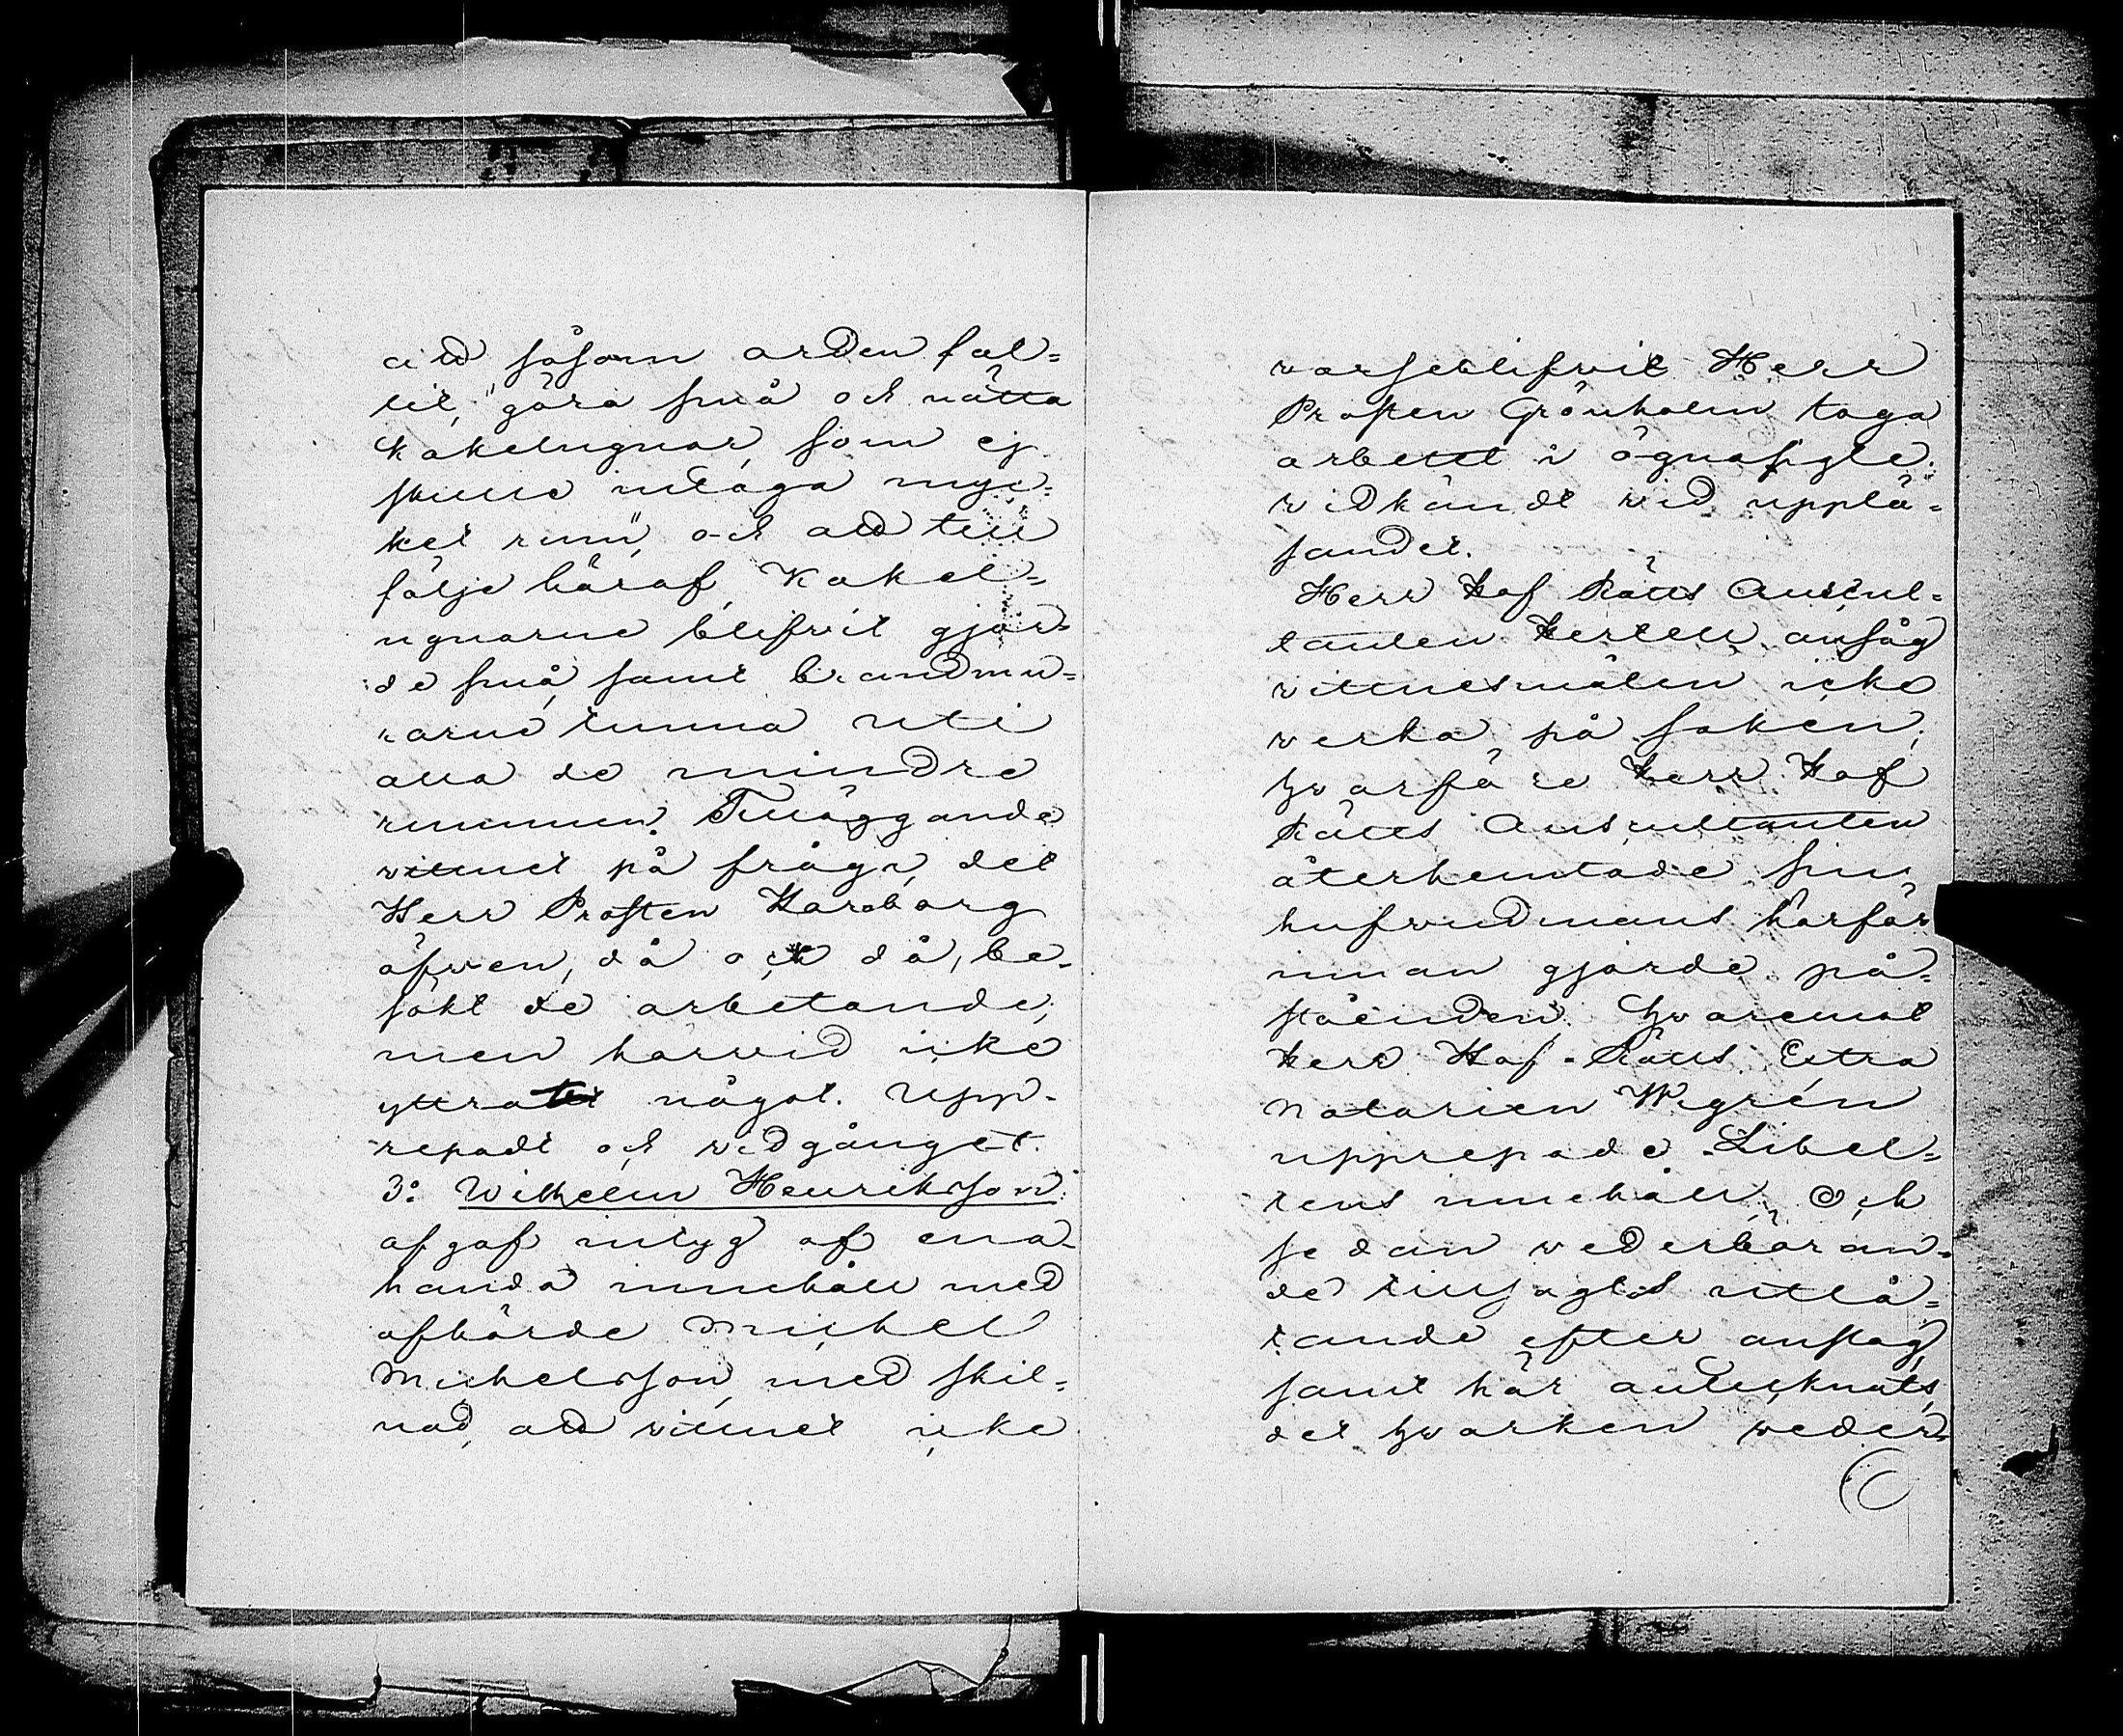 att såsom orden fal-
lit, "göra små och nätta
Kakelugnar, som ej
skulle intaga myc-
ket rum", och att till
följe häraf Kakel-
ugnarne blifvit gjor-
de små, samt brandmu-
rarne tunna uti
alla de mindre
rummen. Tilläggande
vittnet på fråga, det
Herr Prosten Karaborg
äfwen, då och då, be-
sökt de arbetande,
men härvid icke
yttrat något. Upp-
repadt och vidgånget.
3:o Wilhelm Henriksson
afgaf intyg af ena-
handa innehåll med
afhörde Michel
Michelsson, med skil-
nad, att vittnet icke
varseblifvit Herr
Prosten Grönholm taga
arbetet i ögnasigte.
Vidkändt vid upplä-
sandet.
Herr Hof Rätts Auscul-
tanten Hertell ansåg
vittnesmålen icke
verka på saken,
hvarföre Herr Hof
Rätts Auscultanten
återhemtade sin
hufvudmans härför
innan gjorde på-
ståenden. Hvaremot
Herr Hof-Rätts Extra
Notarien Wigrén
upprepade Libel-
lens innehåll, Och
sedan vederböran-
de tillsagts utlå-
tande efter anslag
samt här antecknats,
det hvarken veder-